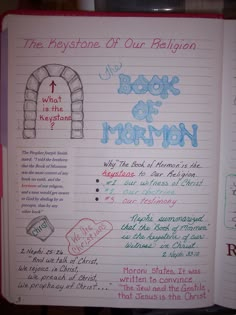 The Keystone Of Our Religion
What
is the
Keystone
?
The
BOOK
OF
MORMON
The Prophet Joseph Smith
said: "I told the brethren
that the Book of Mormon
was the most correct of any
book on earth, and the
keystone of our religion,
and a man would get nearer
to God by abiding by its
precepts, than by any
other book."
Why The Book of Mormon is the
keystone to Our Religion
#1 our witness of Christ
#2 our doctrine
#3 our testimony
Christ
We Are
Christians
Nephi summarized
that the Book of Mormon
is the keystone of our
Witness in Christ.
2 Nephi 25:26
"And we talk of Christ,
we rejoice in Christ,
we preach of Christ,
we prophesy of Christ...."
Moroni States, It was
written to convince
"the Jew and the Gentile
that Jesus is the Christ
R